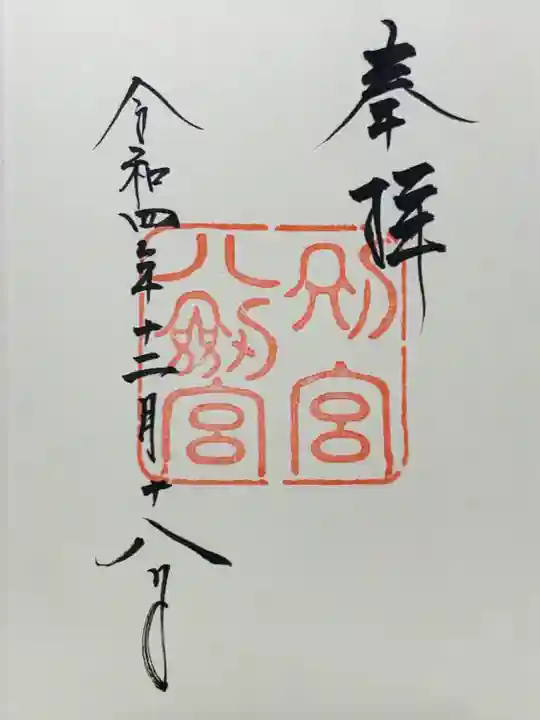 奉拝
令和四年十二月十八日
別宮
八剱宮